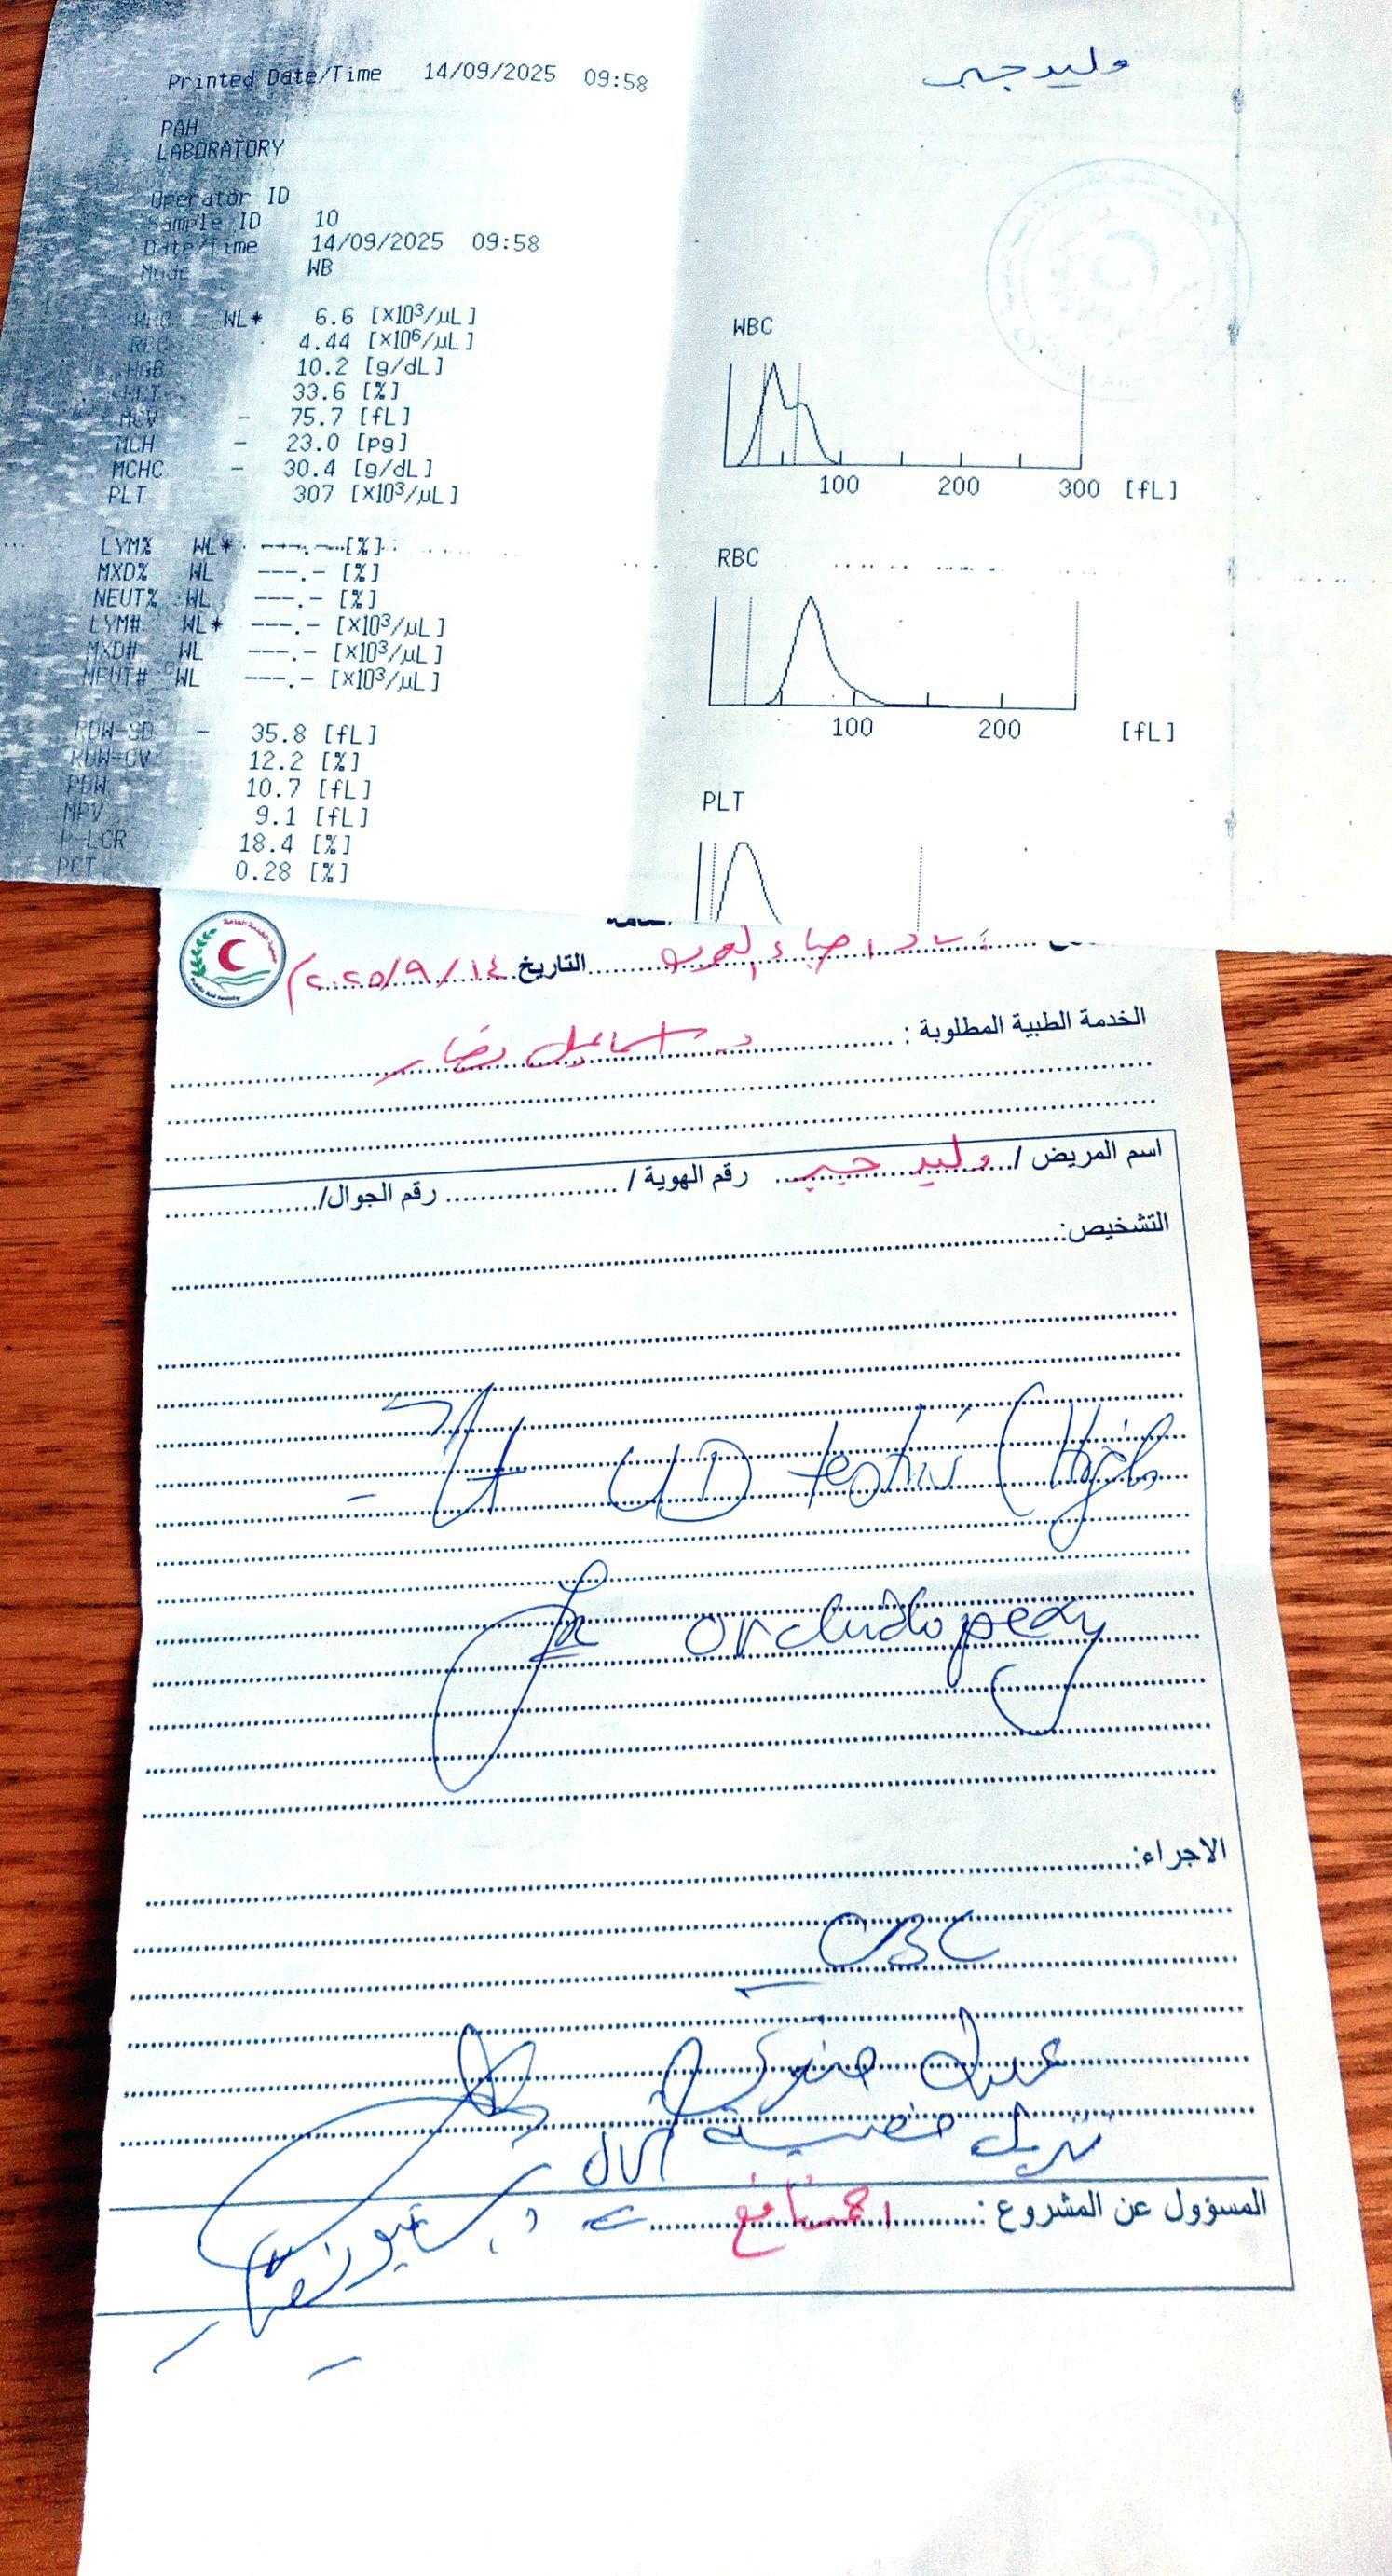 Printed Date/Time 14/09/2025 09:58
وليد جبر
PAH
LABORATORY
Operator ID
Sample ID 10
Date/Time 14/09/2025 09:58
Mode WB
WBC WL* 6.6 [×10³/µL]
RBC 4.44 [×10⁶/µL]
HGB 10.2 [g/dL]
HCT 33.6 [%]
MCV - 75.7 [fL]
MCH - 23.0 [pg]
MCHC - 30.4 [g/dL]
PLT 307 [×10³/µL]
LYM% WL* ---.- [%]
MXD% WL ---.- [%]
NEUT% WL ---.- [%]
LYM# WL* ---.- [×10³/µL]
MXD# WL ---.- [×10³/µL]
NEUT# WL ---.- [×10³/µL]
RDW-SD - 35.8 [fL]
RDW-CV 12.2 [%]
PDW 10.7 [fL]
MPV 9.1 [fL]
P-LCR 18.4 [%]
PCT 0.28 [%]
WBC
100 200 300 [fL]
RBC
100 200 [fL]
PLT
Public Aid Society
التاريخ ١٤/٩/٢٠٢٥
الخدمة الطبية المطلوبة : د. اسماعيل نصار
اسم المريض / وليد جبر رقم الهوية / رقم الجوال/
التشخيص:
UD testis (High
for orchidopexy
الاجراء:
CBC
تنزيل خصية
المسؤول عن المشروع :